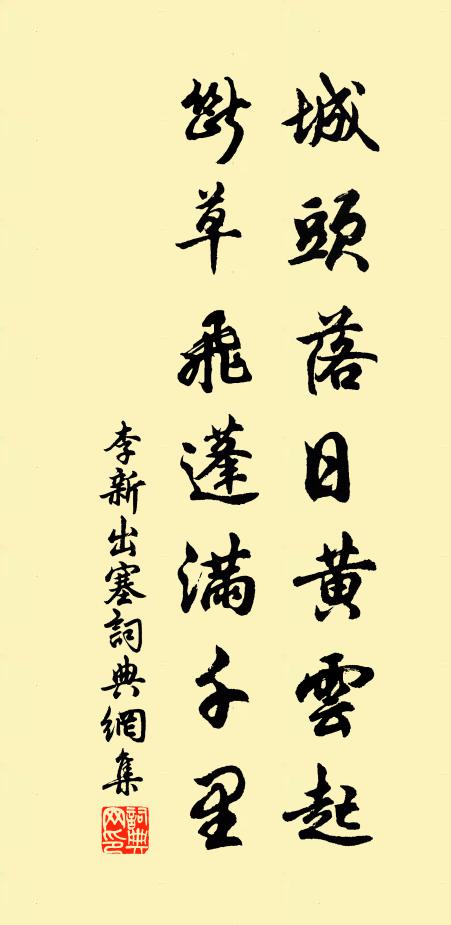 城頭落日黃雲起
斷草飛蓬滿千里
李新出塞詞典網集
詞典網印